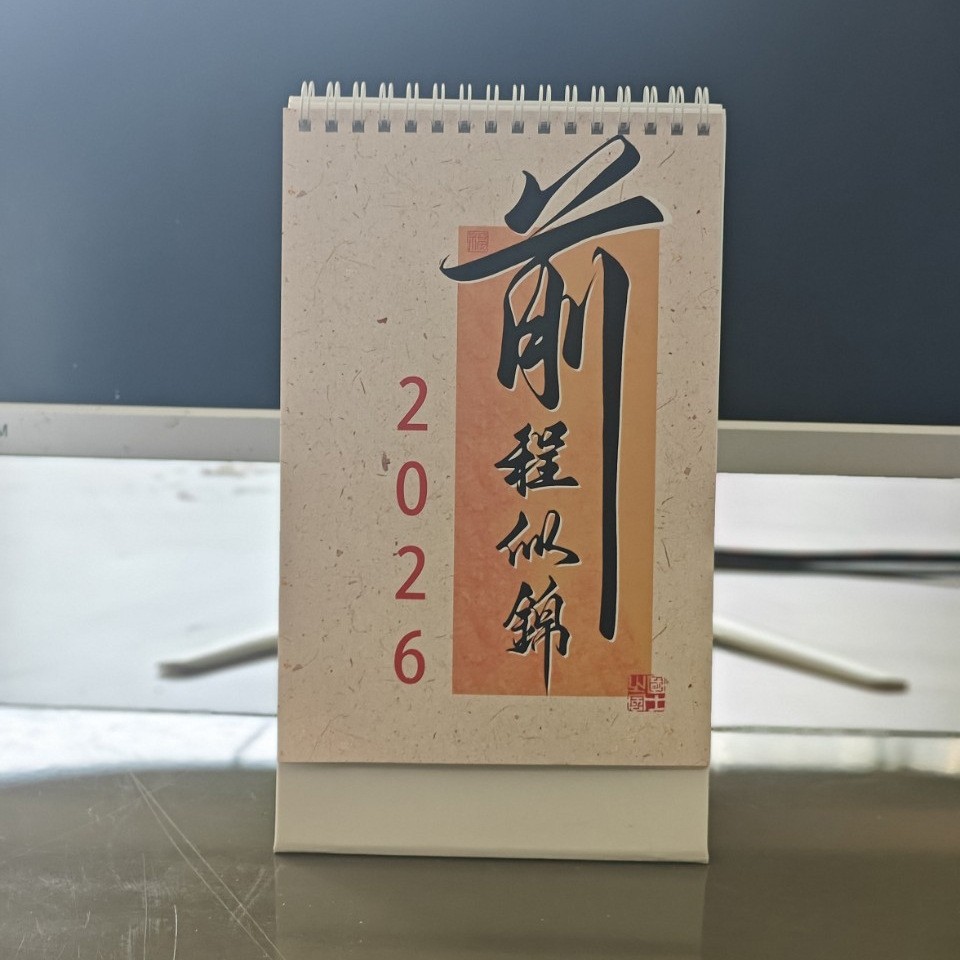 前程似錦
2026